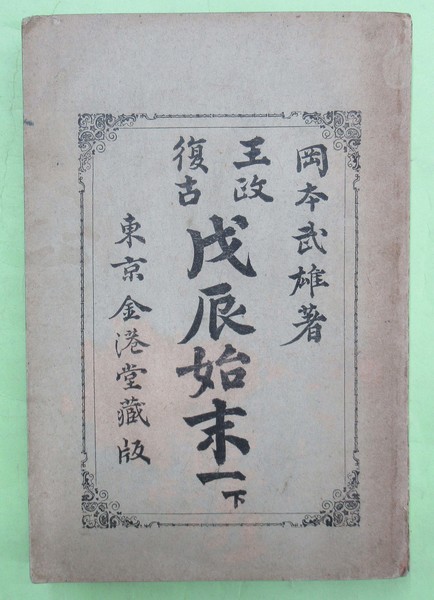 岡本武雄著
王政
復古
戊辰始末一下
東京金港堂藏版